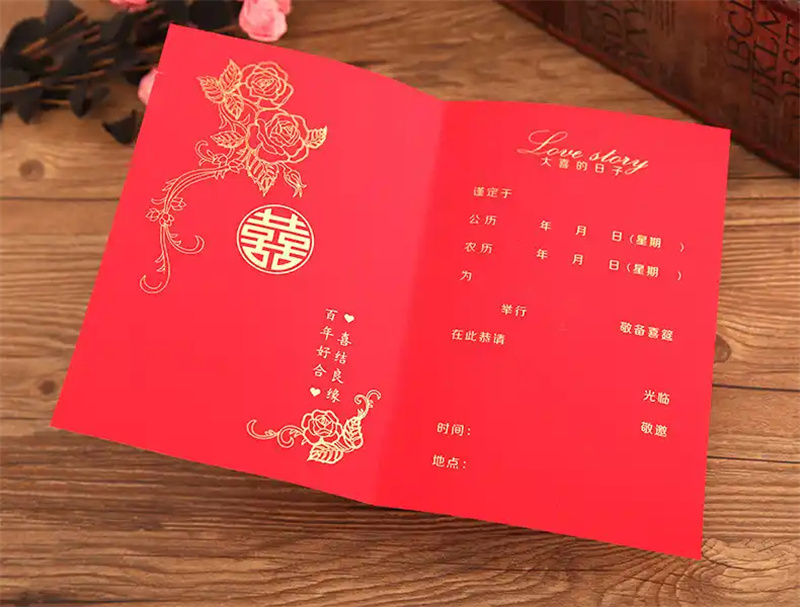 囍
♥喜结良缘
百年好合♥
Love story
大喜的日子
谨定于
公历 年 月 日(星期 )
农历 年 月 日(星期 )
为
举行 敬备喜筵
在此恭请
光临
敬邀
时间：
地点：